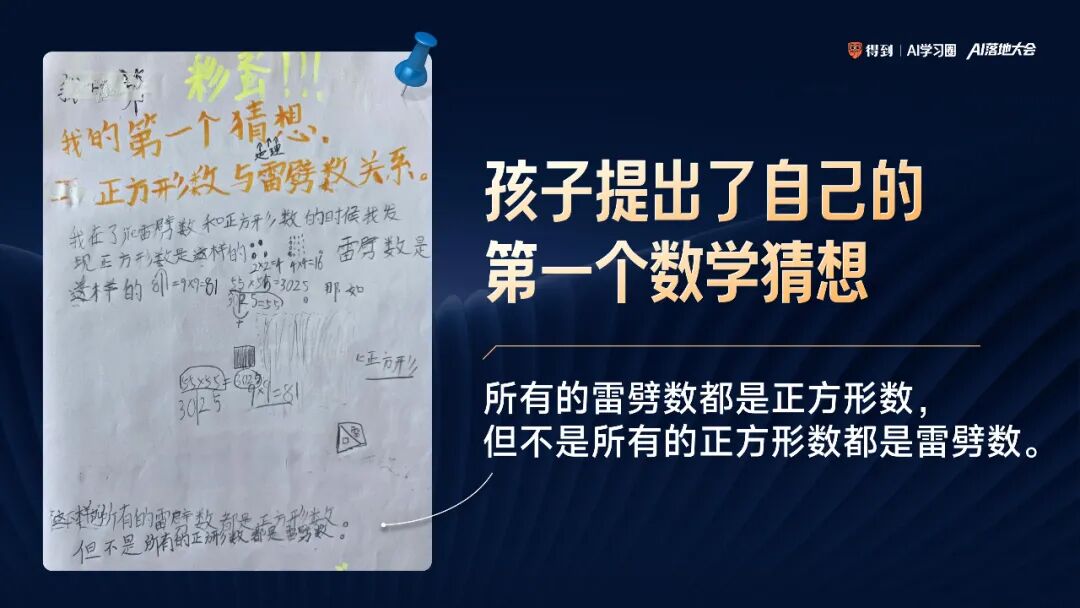 得到 | AI学习圈 AI落地大会
彩蛋!!!
我的第一个猜想.
正方形数与雷劈数关系。
我在了解雷劈数和正方形数的时候我发
现正方形数是这样的 2×2=4 4×4=16 雷劈数是
这样的 81=9×9=81 55×55=3025 那如
30 25=55
正方形
55×55=3025
9×9=81
3025
这样的所有的雷劈数都是正方形数。
但不是所有的正方形数都是雷劈数。
孩子提出了自己的
第一个数学猜想
所有的雷劈数都是正方形数，
但不是所有的正方形数都是雷劈数。